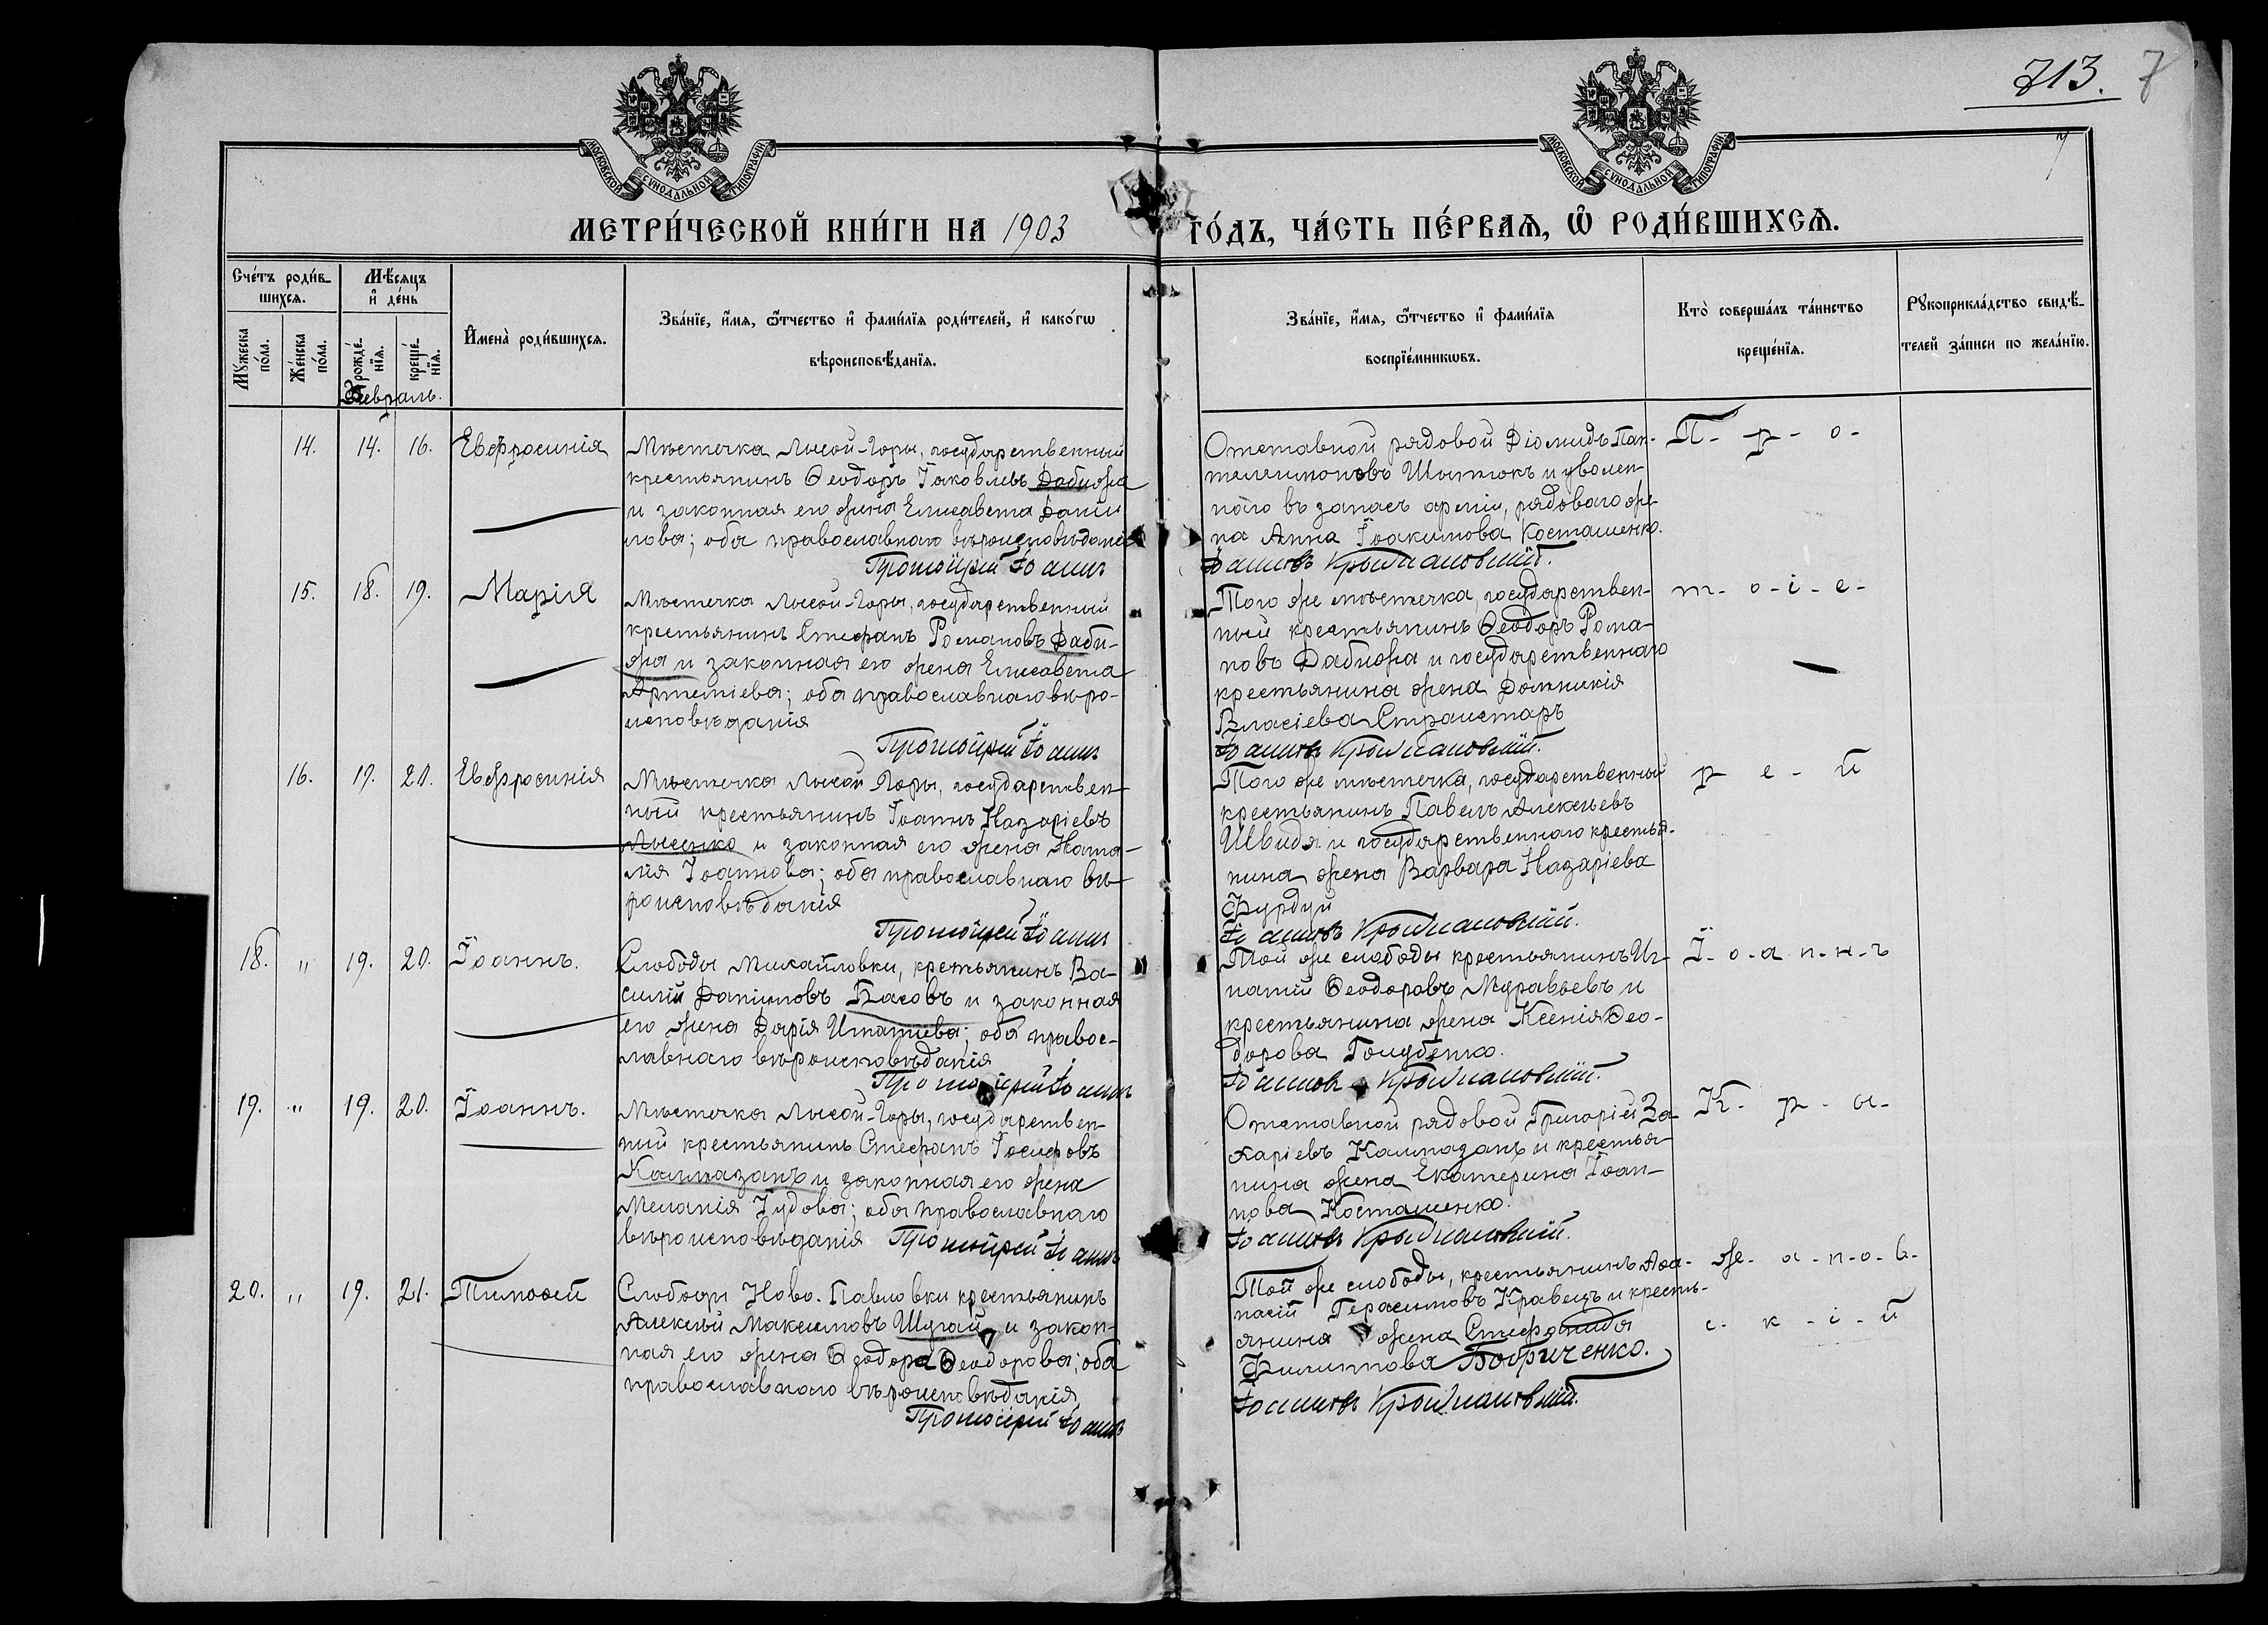 713. 7
7
МОСКОВСКОЙ СѴНОДАЛЬНОЙ ТИПОГРАФІИ
МОСКОВСКОЙ СѴНОДАЛЬНОЙ ТИПОГРАФІИ
МЕТРИ́ЧЕСКОЙ КНИ́ГИ НА 1903 ГО́ДЪ, ЧА́СТЬ ПЕ́РВАѦ, Ѽ РОДИ́ВШИХСѦ.
Сче́тъ роди́в-
шихсѧ.
Мѣ́сѧцъ
и҆ де́нь
Мꙋ́жеска
по́ла.
Же́нска
по́ла.
рожде́-
нїѧ.
креще́-
нїѧ.
И҆мена̀ роди́вшихсѧ.
Зва́нїе, и҆́мѧ, ѻ҆́тчество и҆ фами́лїѧ роди́телей, и҆ како́гѡ
вѣроисповѣ́данїѧ.
Зва́нїе, и҆́мѧ, ѻ҆́тчество и҆ фами́лїѧ
воспрїе́мникѡвъ.
Кто̀ соверша́лъ та́инство
креще́нїѧ.
Рꙋкоприкла́дство свидѣ́-
телей за́писи по жела́нїю.
Февраль.
14. 14. 16. Евфросинія
Мѣстечка Лысой-Горы, государственный
крестьянинъ Ѳеодоръ Іаковлевъ Дабижа
и законная его жена Елисавета Дани
лова; оба православнаго вѣроисповѣданія
Протоіерей Іоаннъ
Отставной рядовой Діомидъ Пан-
телеимоновъ и уволен-
наго въ запасъ арміи, рядоваго же-
на Анна Іоакимова Косташенко.
Іоанновъ Крыжановскій.
П- р- о-
15. 18. 19. Марія
Мѣстечка Лысой-Горы, государственный
крестьянинъ Стефанъ Романовъ Даби-
жа и законная его жена Елисавета
Артеміева; оба православнаго вѣро-
исповѣданія
Протоіерей Іоаннъ
Того же мѣстечка, государствен-
ный крестьянинъ Ѳеодоръ Рома-
новъ Дабижа и государственнаго
крестьянина жена Домникія
Власіева
Іоанновъ Крыжановскій.
т- о- і- е-
16. 17. 20. Евфросинія
Мѣстечка Лысой Горы, государствен-
ный крестьянинъ Іоаннъ Назаріевъ
Лысенко и законная его жена Ната-
лія Іоаннова; оба православнаго вѣ-
роисповѣданія
Протоіерей Іоаннъ
Того же мѣстечка, государственный
крестьянинъ Павелъ Алексѣевъ
Швидя и государственнаго крестья-
нина жена Варвара Назаріева
Фурдуй
Іоанновъ Крыжановскій.
р е- й
18. " 19. 20. Іоаннъ.
Слободы Михайловки, крестьянинъ Ва-
силій Даніиловъ Басовъ и законная
его жена Дарія Игнатіева; оба правос-
лавнаго вѣроисповѣданія
Протоіерей Іоаннъ
Той же слободы крестьянинъ Иг-
натій Ѳеодоровъ Муравьевъ и
крестьянина жена Ксенія Ѳео-
дорова Голубенко.
Іоанновъ Крыжановскій.
І- о- а н- н- ъ
19. " 19. 20. Іоаннъ.
Мѣстечка Лысой-Горы, государствен-
ный крестьянинъ Стефанъ Іосифовъ
Калмазанъ и законная его жена
Меланія Іудова; оба православнаго
вѣроисповѣданія Протоіерей Іоаннъ
Отставной рядовой Григорій За-
харіевъ Калмазанъ и крестья-
нина жена Екатерина Іоан-
нова Косташенко.
Іоанновъ Крыжановскій.
К- р- ы-
20. " 19. 21. Тимоѳей
Слободы Ново-Павловки крестьянинъ
Алексѣй Максимовъ Шугай и закон-
ная его жена Ѳеодора Ѳеодорова; оба
православнаго вѣроисповѣданія
Протоіерей Іоаннъ
Той же слободы, крестьянинъ Аѳа-
насій Герасимовъ Кравецъ и кресть-
янина жена Стефанида
Филиппова Бобриченко.
Іоанновъ Крыжановскій.
ж- а- н- о- в-
с- к- і- й